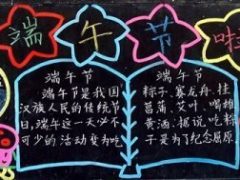 端午节啦
端午节
端午节是我国
汉族人民的传统节
日,端午这一天必不
可少的活动变为吃
端午节
粽子,赛龙舟,挂
菖蒲、艾叶、喝雄
黄酒。据说吃粽
子是为了纪念屈原